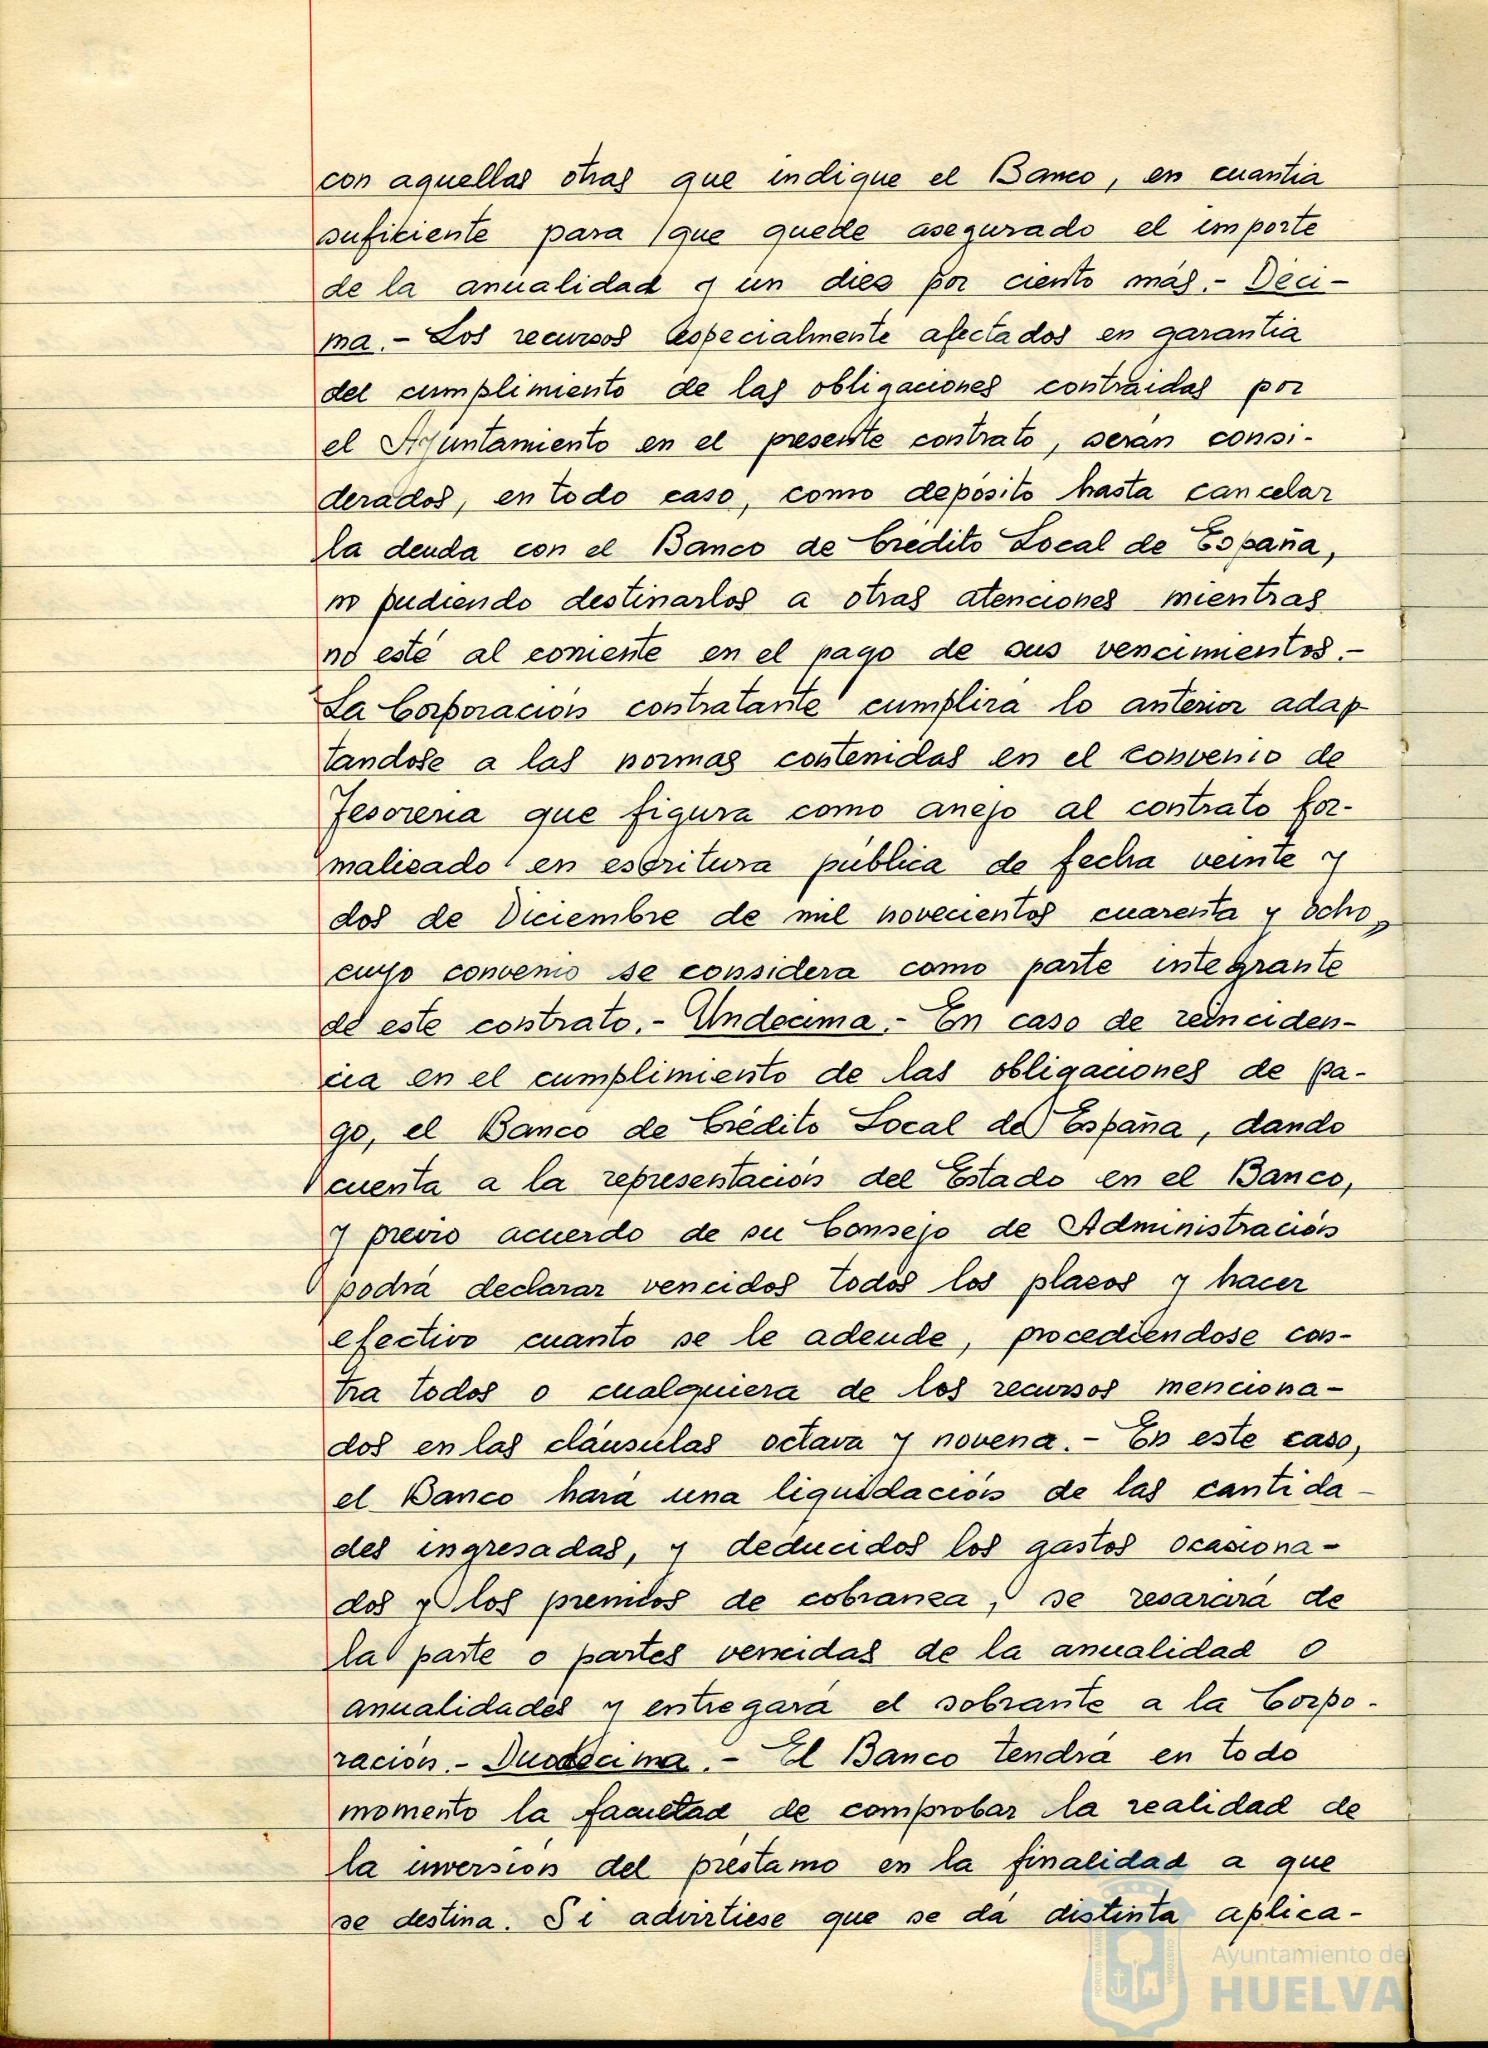 con aquellas otras que indique el Banco, en cuantia
suficiente para que quede asegurado el importe
de la anualidad y un diez por ciento más.- Déci-
ma.- Los recursos especialmente afectados en garantia
del cumplimiento de las obligaciones contraidas por
el Ayuntamiento en el presente contrato, serán consi-
derados, en todo caso, como depósito hasta cancelar
la deuda con el Banco de Crédito Local de España,
no pudiendo destinarlos a otras atenciones mientras
no esté al corriente en el pago de sus vencimientos.-
La Corporación contratante cumplirá lo anterior adap-
tandose a las normas contenidas en el convenio de
Tesoreria que figura como anejo al contrato for-
malizado en escritura pública de fecha veinte y
dos de Diciembre de mil novecientos cuarenta y ocho,
cuyo convenio se considera como parte integrante
de este contrato.- Undecima.- En caso de reinciden-
cia en el cumplimiento de las obligaciones de pa-
go, el Banco de Crédito Local de España, dando
cuenta a la representación del Estado en el Banco,
y previo acuerdo de su Consejo de Administración
podrá declarar vencidos todos los plazos y hacer
efectivo cuanto se le adeude, procediéndose con-
tra todos o cualquiera de los recursos menciona-
dos en las cláusulas octava y novena.- En este caso,
el Banco hará una liquidación de las cantida-
des ingresadas, y deducidos los gastos ocasiona-
dos y los premios de cobranza, se resarcirá de
la parte o partes vencidas de la anualidad o
anualidades y entregará el sobrante a la Corpo-
ración.- Duodécima.- El Banco tendrá en todo
momento la facultad de comprobar la realidad de
la inversión del préstamo en la finalidad a que
se destina. Si advirtiese que se dá distinta aplica-
Ayuntamiento de
HUELVA